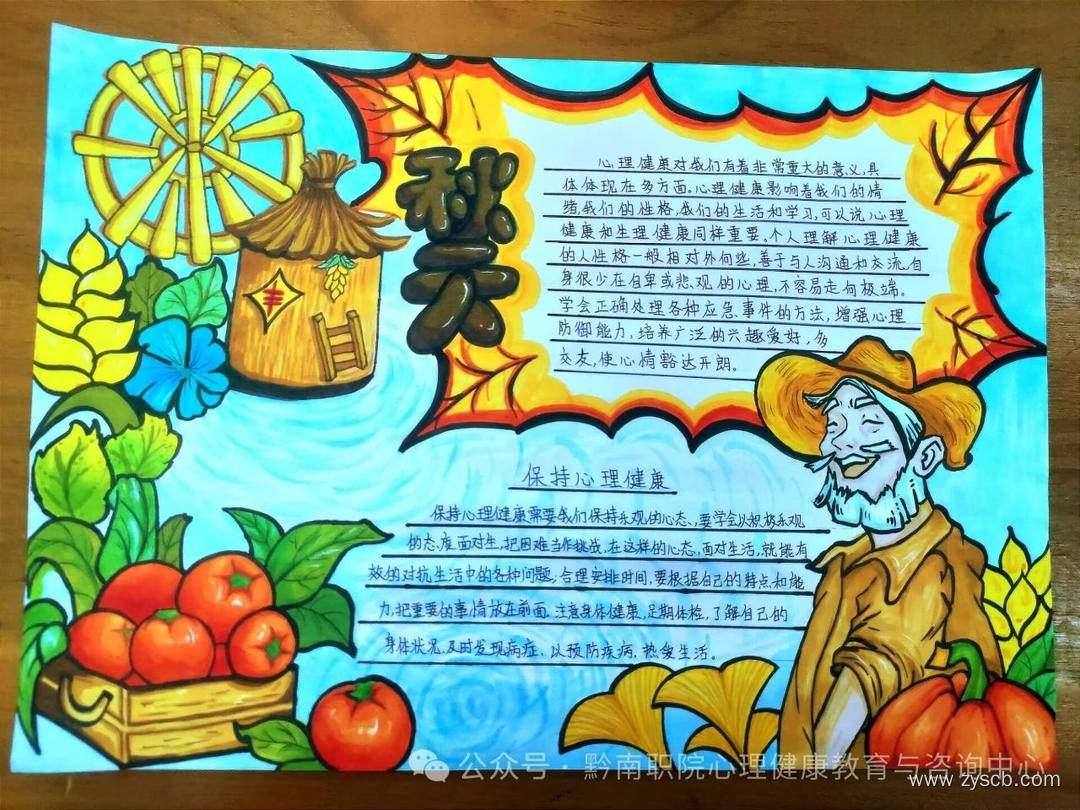 秋天
丰
心理健康对我们有着非常重大的意义,具
体体现在多方面。心理健康影响着我们的情
绪,我们的性格,我们的生活和学习,可以说心理
健康和生理健康同样重要。个人理解心理健康
的人性格一般相对外向些,善于与人沟通和交流,自
身很少在自卑或悲观的心理,不容易走向极端。
学会正确处理各种应急事件的方法,增强心理
防御能力,培养广泛的兴趣爱好,多
交友,使心情豁达开朗。
保持心理健康
保持心理健康需要我们保持乐观的心态,要学会以积极乐观
的态度面对生,把困难当作挑战,在这样的心态,面对生活,就能有
效的对抗生活中的各种问题;合理安排时间,要根据自己的特点和能
力,把重要的事情放在前面,注意身体健康,定期体检,了解自己的
身体状况,及时发现病症,以预防疾病,热爱生活。
公众号 · 黔南职院心理健康教育与咨询中心
www.zyscb.com